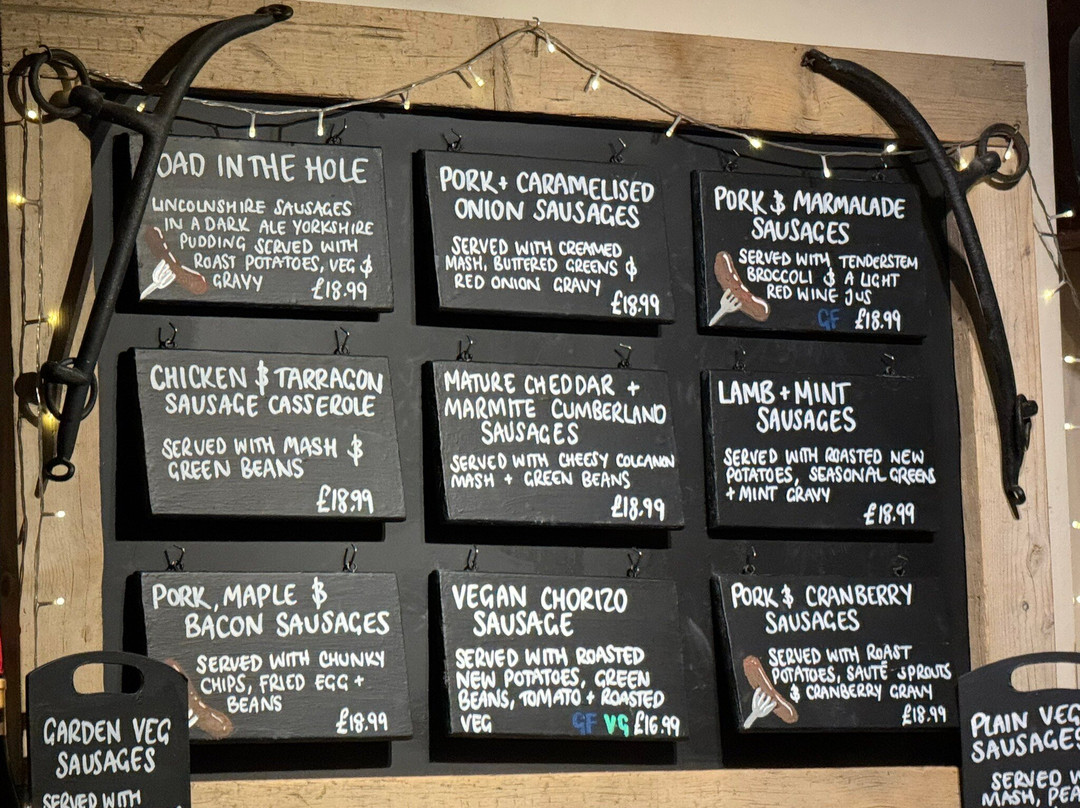 OAD IN THE HOLE
LINCOLNSHIRE SAUSAGES
IN A DARK ALE YORKSHIRE
PUDDING SERVED WITH
ROAST POTATOES, VEG &
GRAVY £18.99
PORK + CARAMELISED
ONION SAUSAGES
SERVED WITH CREAMED
MASH, BUTTERED GREENS &
RED ONION GRAVY
£18.99
PORK & MARMALADE
SAUSAGES
SERVED WITH TENDERSTEM
BROCCOLI & A LIGHT
RED WINE JUS
GF £18.99
CHICKEN & TARRAGON
SAUSAGE CASSEROLE
SERVED WITH MASH &
GREEN BEANS
£18.99
MATURE CHEDDAR +
MARMITE CUMBERLAND
SAUSAGES
SERVED WITH CHEESY COLCANON
MASH + GREEN BEANS
£18.99
LAMB + MINT
SAUSAGES
SERVED WITH ROASTED NEW
POTATOES, SEASONAL GREENS
+ MINT GRAVY
£18.99
PORK, MAPLE &
BACON SAUSAGES
SERVED WITH CHUNKY
CHIPS, FRIED EGG +
BEANS
£18.99
VEGAN CHORIZO
SAUSAGE
SERVED WITH ROASTED
NEW POTATOES, GREEN
BEANS, TOMATO + ROASTED
VEG GF VG £16.99
PORK & CRANBERRY
SAUSAGES
SERVED WITH ROAST
POTATOES, SAUTÉ SPROUTS
& CRANBERRY GRAVY
£18.99
GARDEN VEG
SAUSAGES
SERVED WITH
PLAIN VEG
SAUSAGES
SERVED W
MASH, PEA